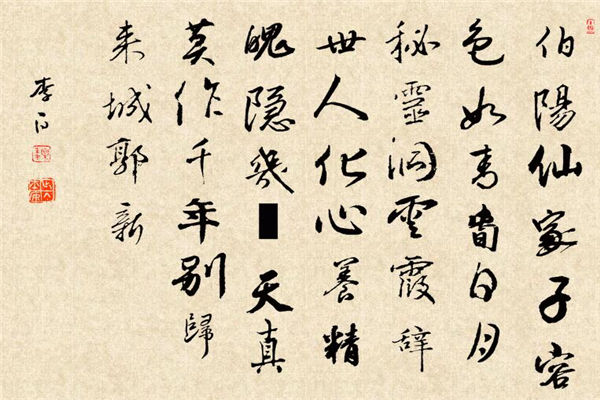 伯陽仙家子容
色如青春日月
秘靈洞雲霞辞
世人化心養精
魄隐幾天真
莫作千年别歸
来城郭新
李白